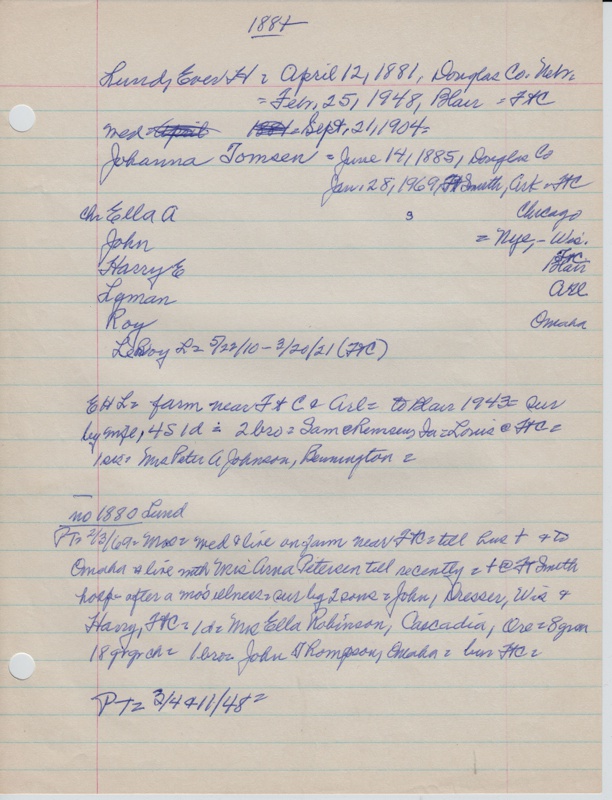 1884
Lund, Ever H = April 12, 1881, Douglas Co. Nebr.
= Febr. 25, 1948, Blair = FtC
med = April 1881 = Sept. 21, 1904 =
Johanna Tomsen = June 14, 1885, Douglas Co
Jan. 28, 1969, Ft Smith, Ark = FtC
ch = Ella A 9 Chicago
John = Nye, - Wis.
Harry E FtC Blair
Lyman Arl
Roy Omaha
LeRoy L = 5/22/10 - 3/20/21 (FtC)
E H L = farm near Ft C & Arl = to Blair 1943 = sur
by wife, 4S 1d = 2 bro = Sam @ Remsen, Ia = Louis @ FtC =
1 sis = Mrs Peter A Johnson, Bennington =
no 1880 Lund
PT = 2/3/69 = Mrs = med & live on farm near FtC = till hus + & to
Omaha & live with Mrs Arna Petersen till recently = + @ Ft Smith
hosp = after a mos illness = sur by 2 sons = John, Dresser, Wis &
Harry, FtC = 1d = Mrs Ella Robinson, Cascadia, Ore = 8 gran
18 grgrch = 1 bro = John Thompson, Omaha = bur FtC =
PT = 3/4 & 11/48 =